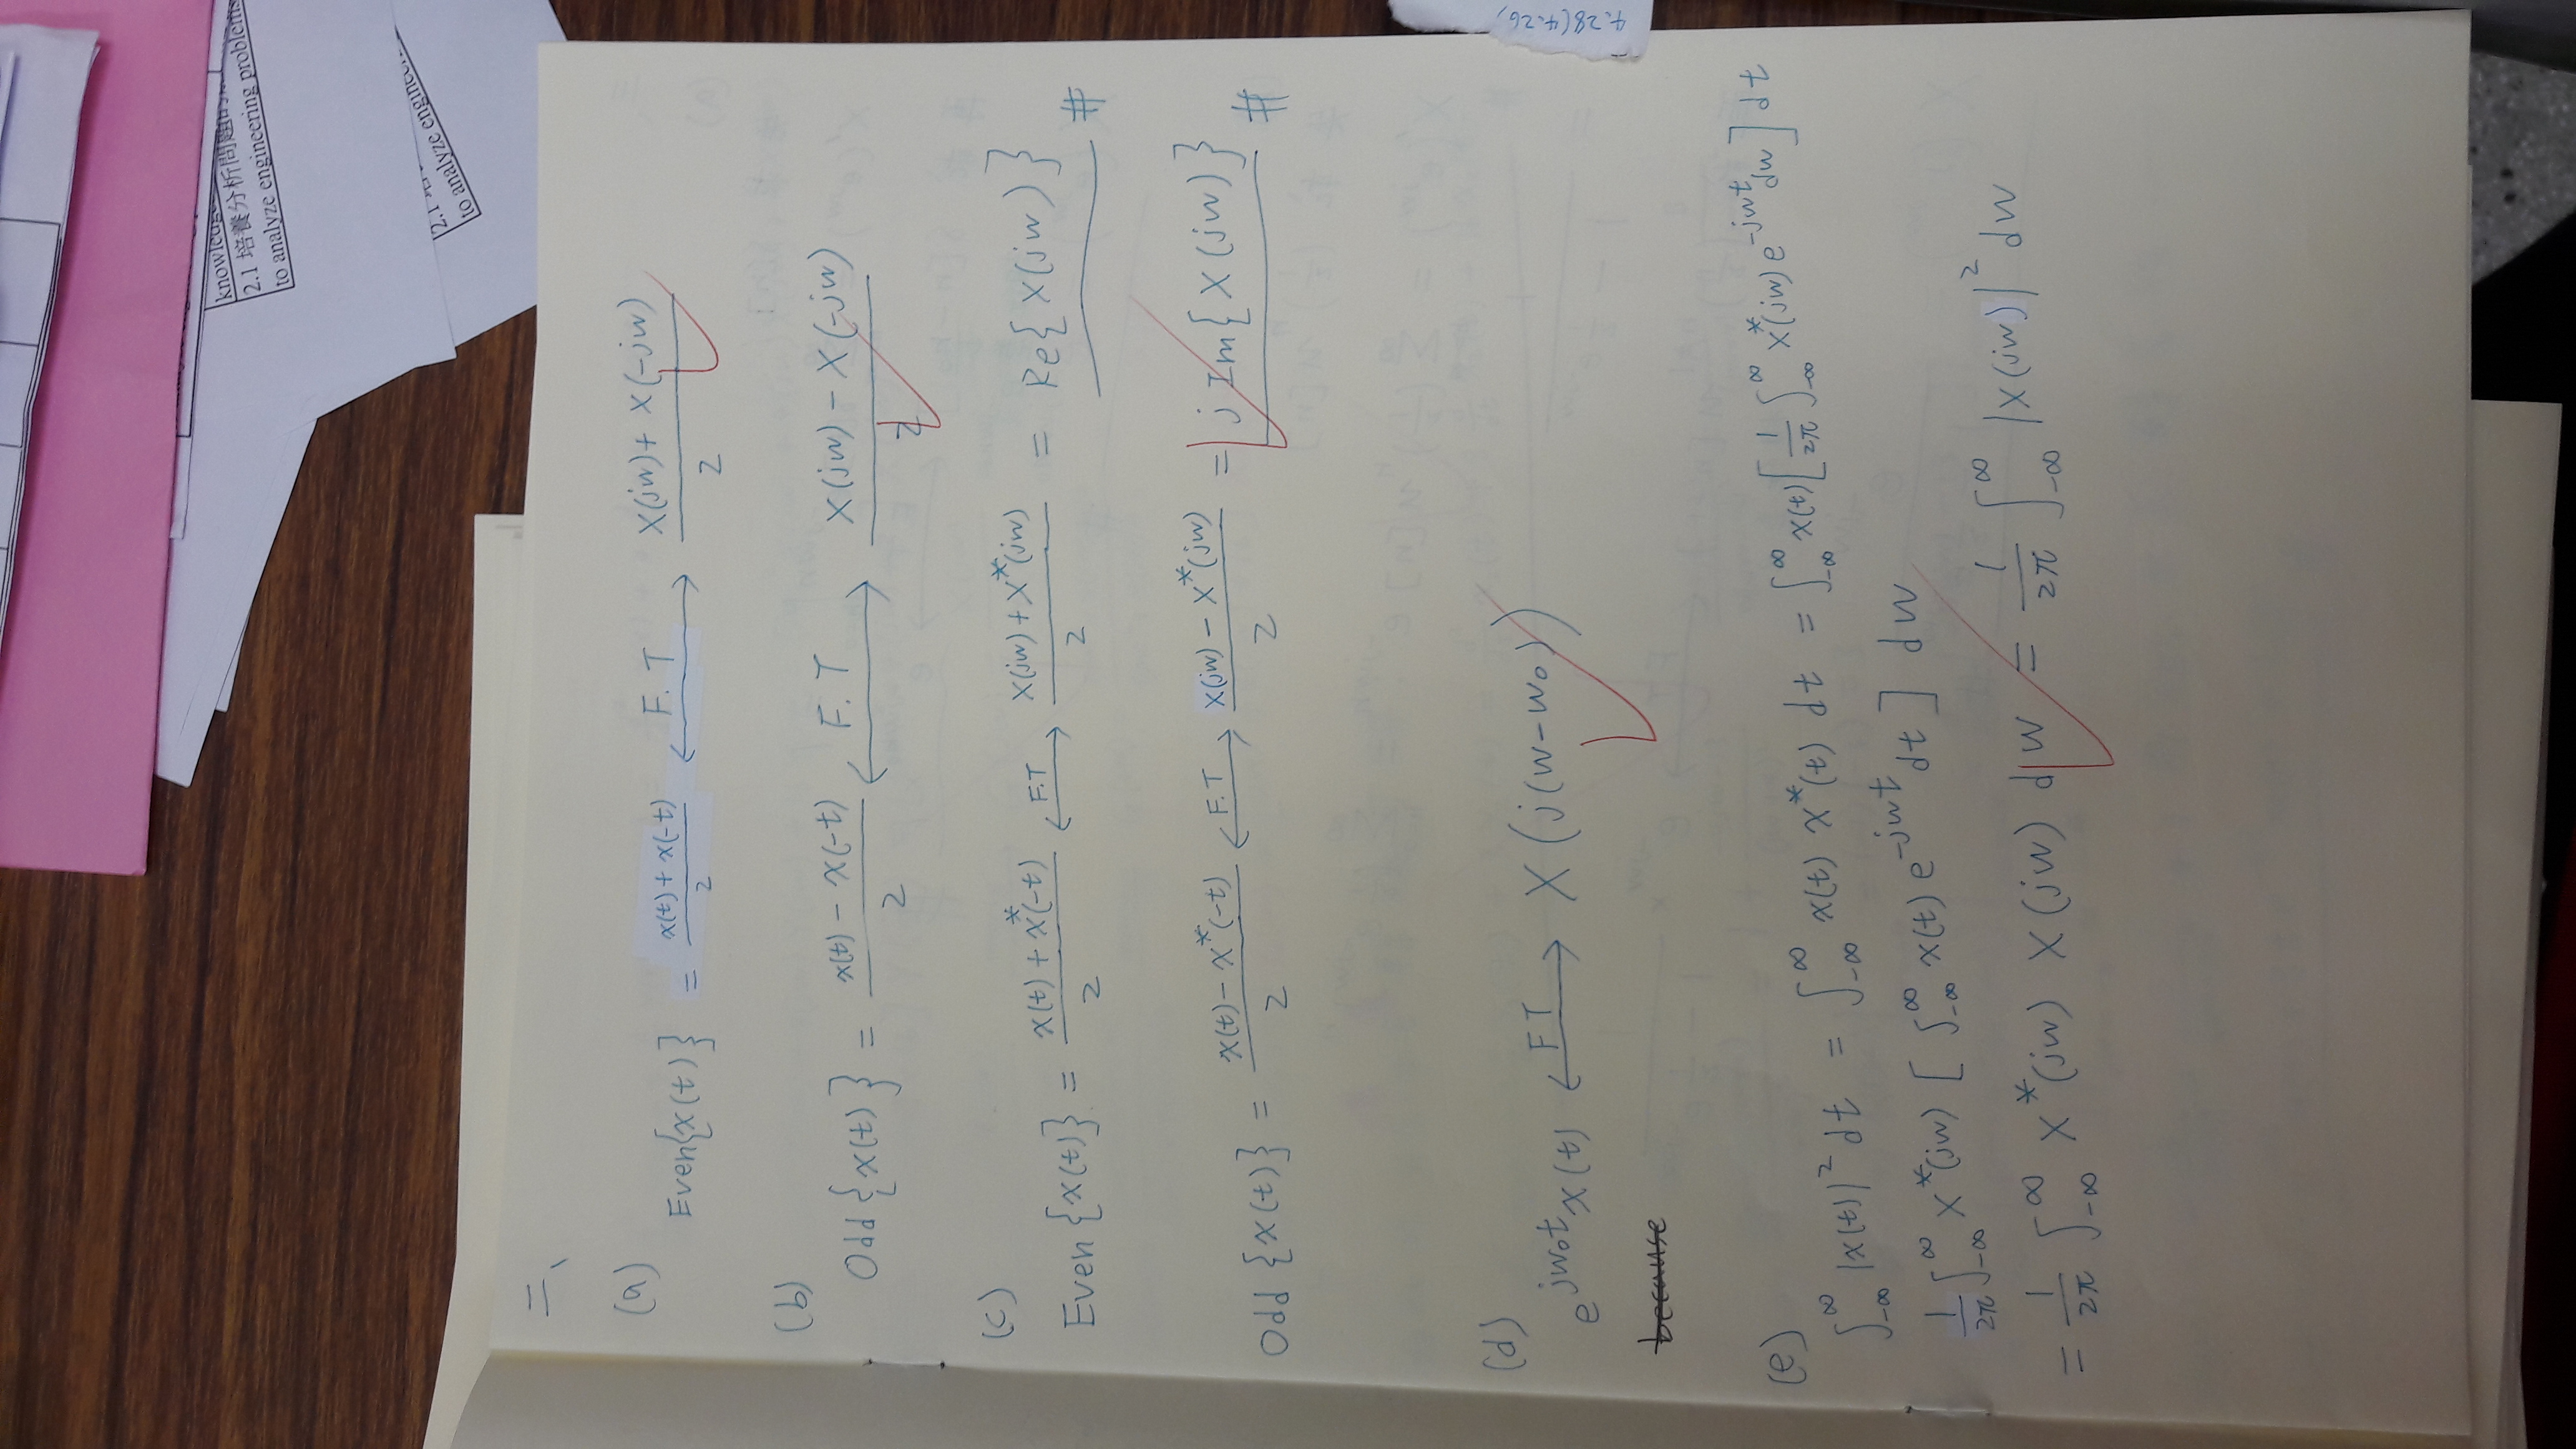 knowledge
2.1 培養分析問題的
to analyze engineering problems
2.1
to analyze engineer
二、
(a)
Even{x(t)} = (x(t) + x(-t))/2 ←F.T→ (X(jw) + X(-jw))/2
(b)
Odd{x(t)} = (x(t) - x(-t))/2 ←F.T→ (X(jw) - X(-jw))/2
(c)
Even{x(t)} = (x(t) + x*(-t))/2 ←F.T→ (X(jw) + X*(jw))/2 = Re{X(jw)} #
Odd{x(t)} = (x(t) - x*(-t))/2 ←F.T→ (X(jw) - X*(jw))/2 = j Im{X(jw)} #
(d)
e^{jw₀t} x(t) ←FT→ X(j(w-w₀))
because
(e)
∫_{-∞}^{∞} |x(t)|² dt = ∫_{-∞}^{∞} x(t) x*(t) dt = ∫_{-∞}^{∞} x(t) [1/2π ∫_{-∞}^{∞} X*(jw) e^{-jwt} dw] dt
1/2π ∫_{-∞}^{∞} X*(jw) [∫_{-∞}^{∞} x(t) e^{-jwt} dt] dw
= 1/2π ∫_{-∞}^{∞} X*(jw) X(jw) dw = 1/2π ∫_{-∞}^{∞} |X(jw)|² dw
4.28(4.26)